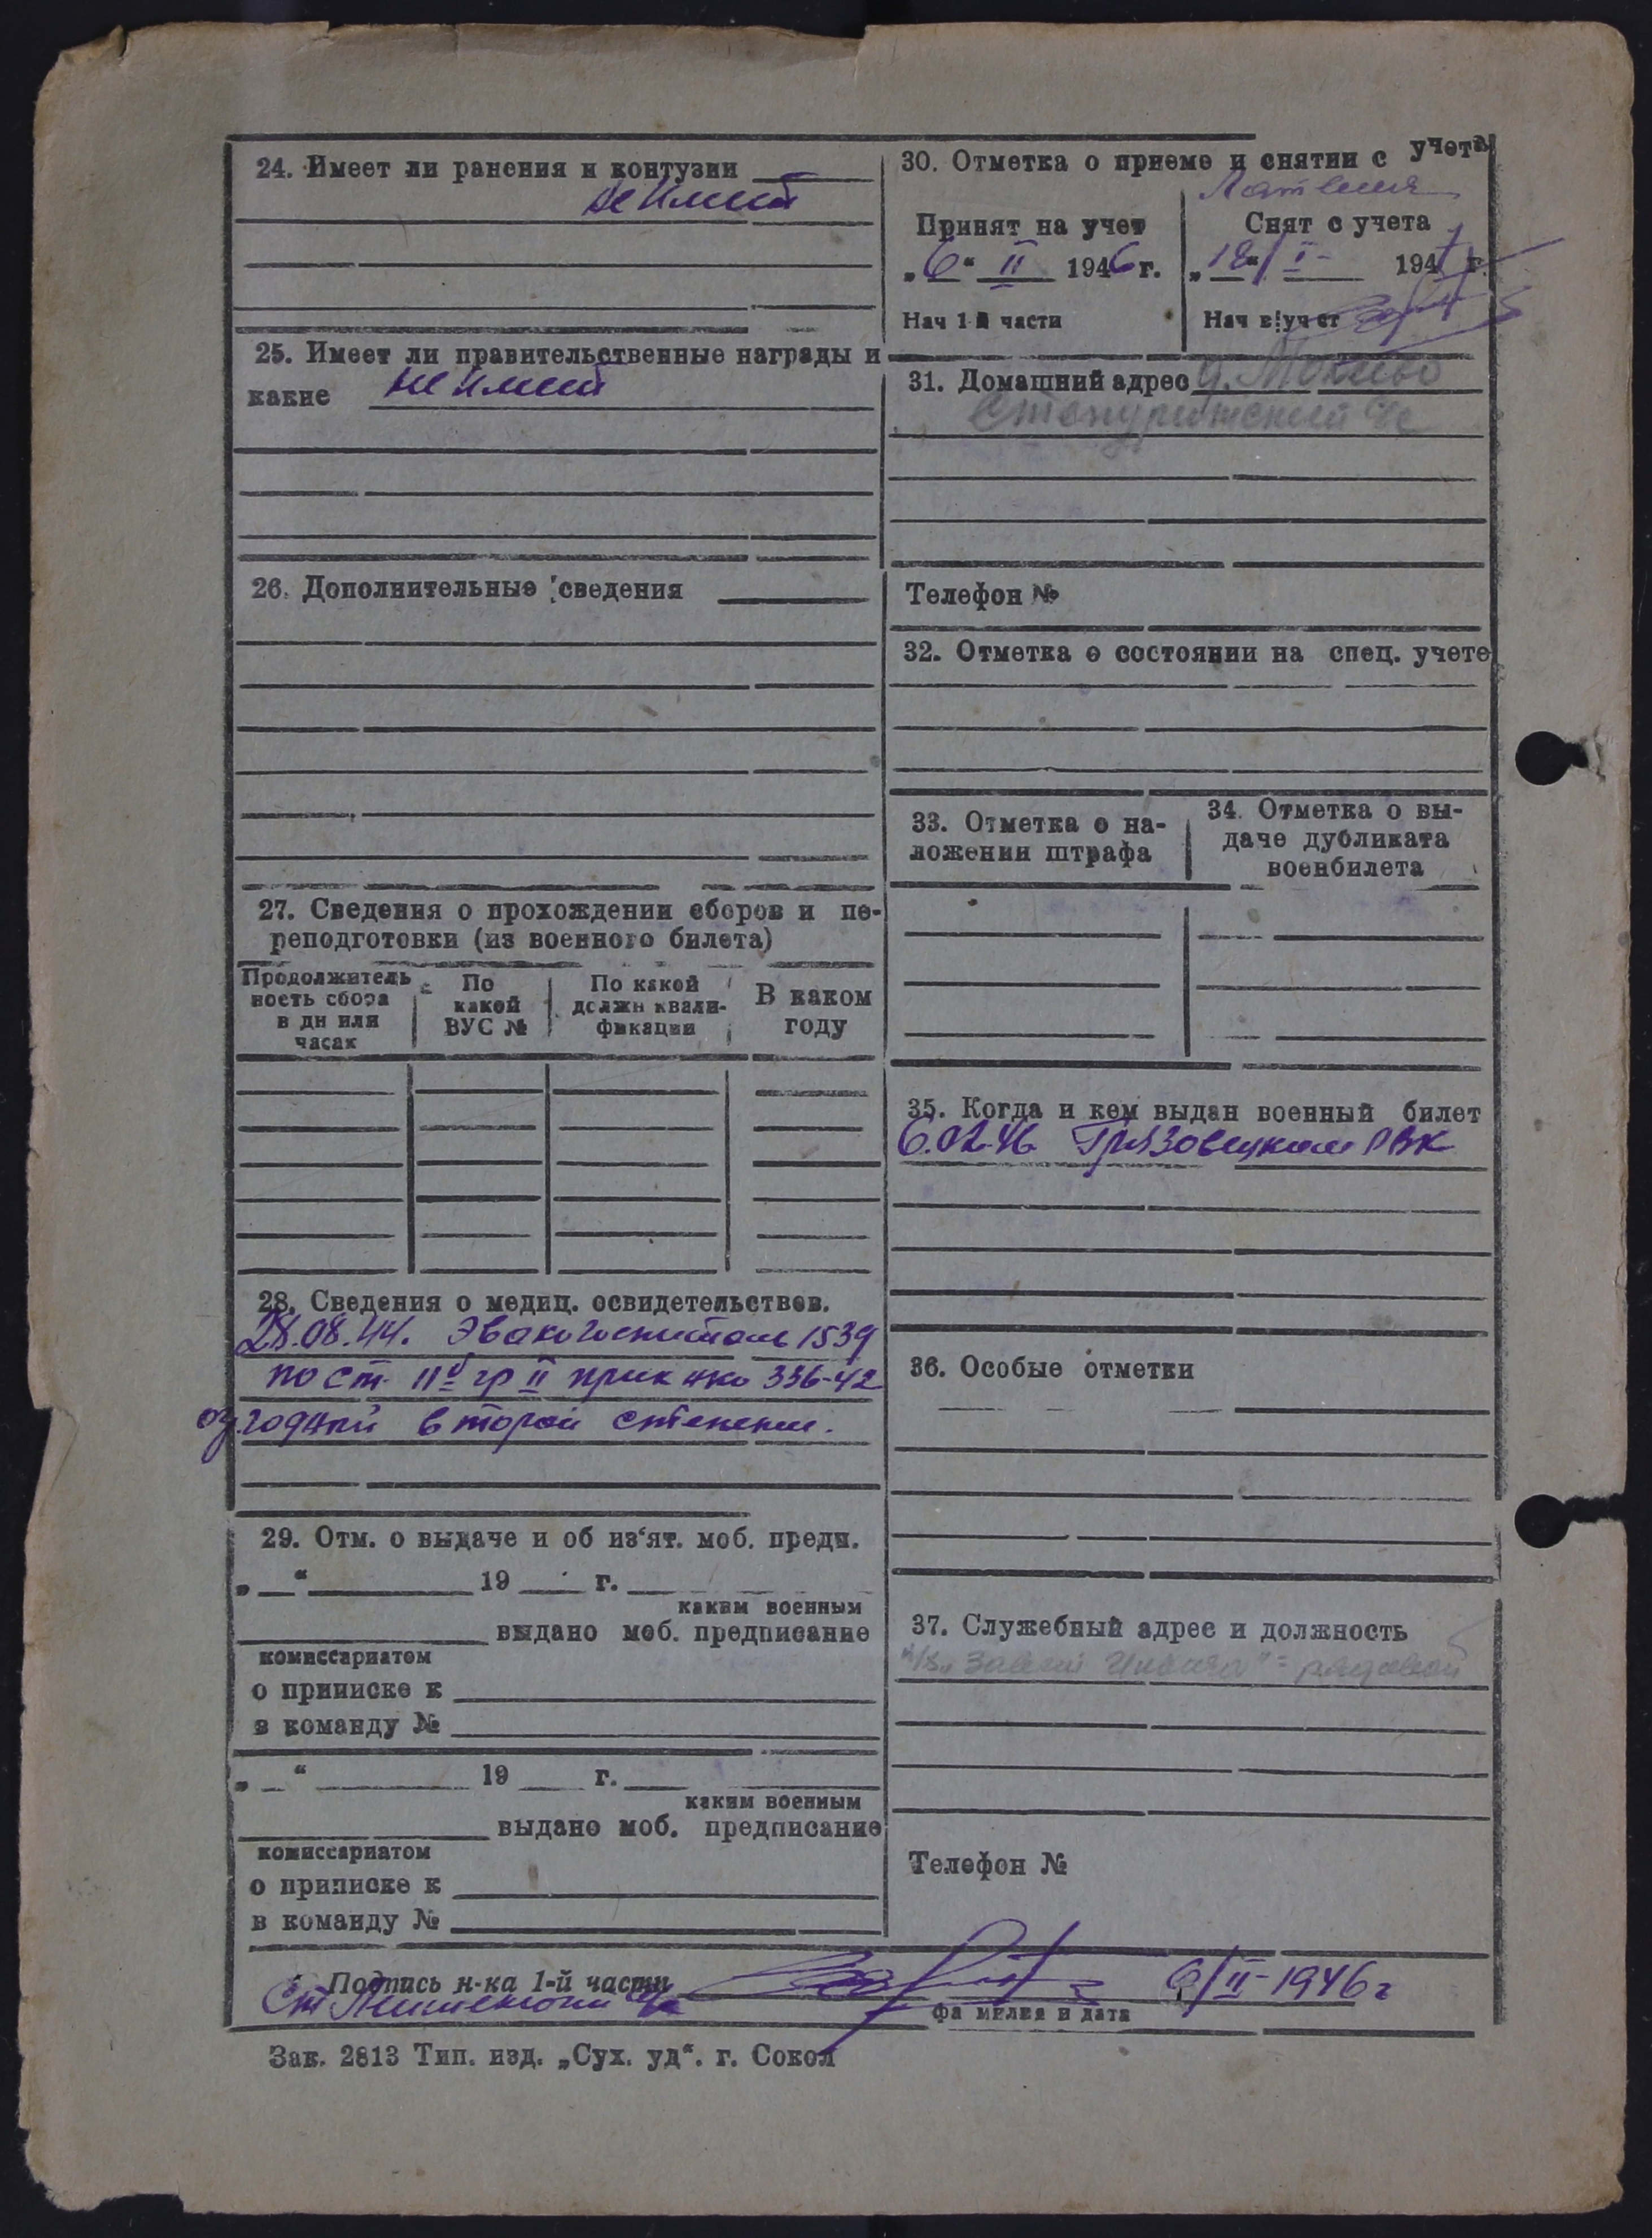 24. Имеет ли ранения и контузии
не имеет
25. Имеет ли правительственные награды и
какие не имеет
26. Дополнительные сведения
27. Сведения о прохождении сборов и пе-
реподготовки (из военного билета)
Продолжитель
ность сбора
в дн или
часах
По
какой
ВУС №
По какой
должн квали-
фикации
В каком
году
28. Сведения о медиц. освидетельствов.
28.08.44. Эвакогоспиталь 1539
по ст. 11б гр II прик нко 336-42
годный второй степени.
29. Отм. о выдаче и об из‘ят. моб. предп.
„ “ 19 г.
каким военным
выдано моб. предписание
комиссариатом
о приписке к
в команду №
„ “ 19 г.
каким военным
выдано моб. предписание
комиссариатом
о приписке к
в команду №
30. Отметка о приеме и снятии с учета
Латвия
Принят на учет
„6“ II 1946 г.
Нач 1-й части
Снят с учета
I 194 г.
Нач в уч ст
31. Домашний адрес д.
Телефон №
32. Отметка о состоянии на спец. учете
33. Отметка о на-
ложении штрафа
34. Отметка о вы-
даче дубликата
военбилета
35. Когда и кем выдан военный билет
6.02.46 Грязовецким РВК
36. Особые отметки
37. Служебный адрес и должность
к/з „Заветы Ильича“ - рядовой
Телефон №
Подпись н-ка 1-й части
Ст Лейтенант 6/II-1946 г
фамилия и дата
Зак. 2813 Тип. изд. „Сух. уд“. г. Сокол